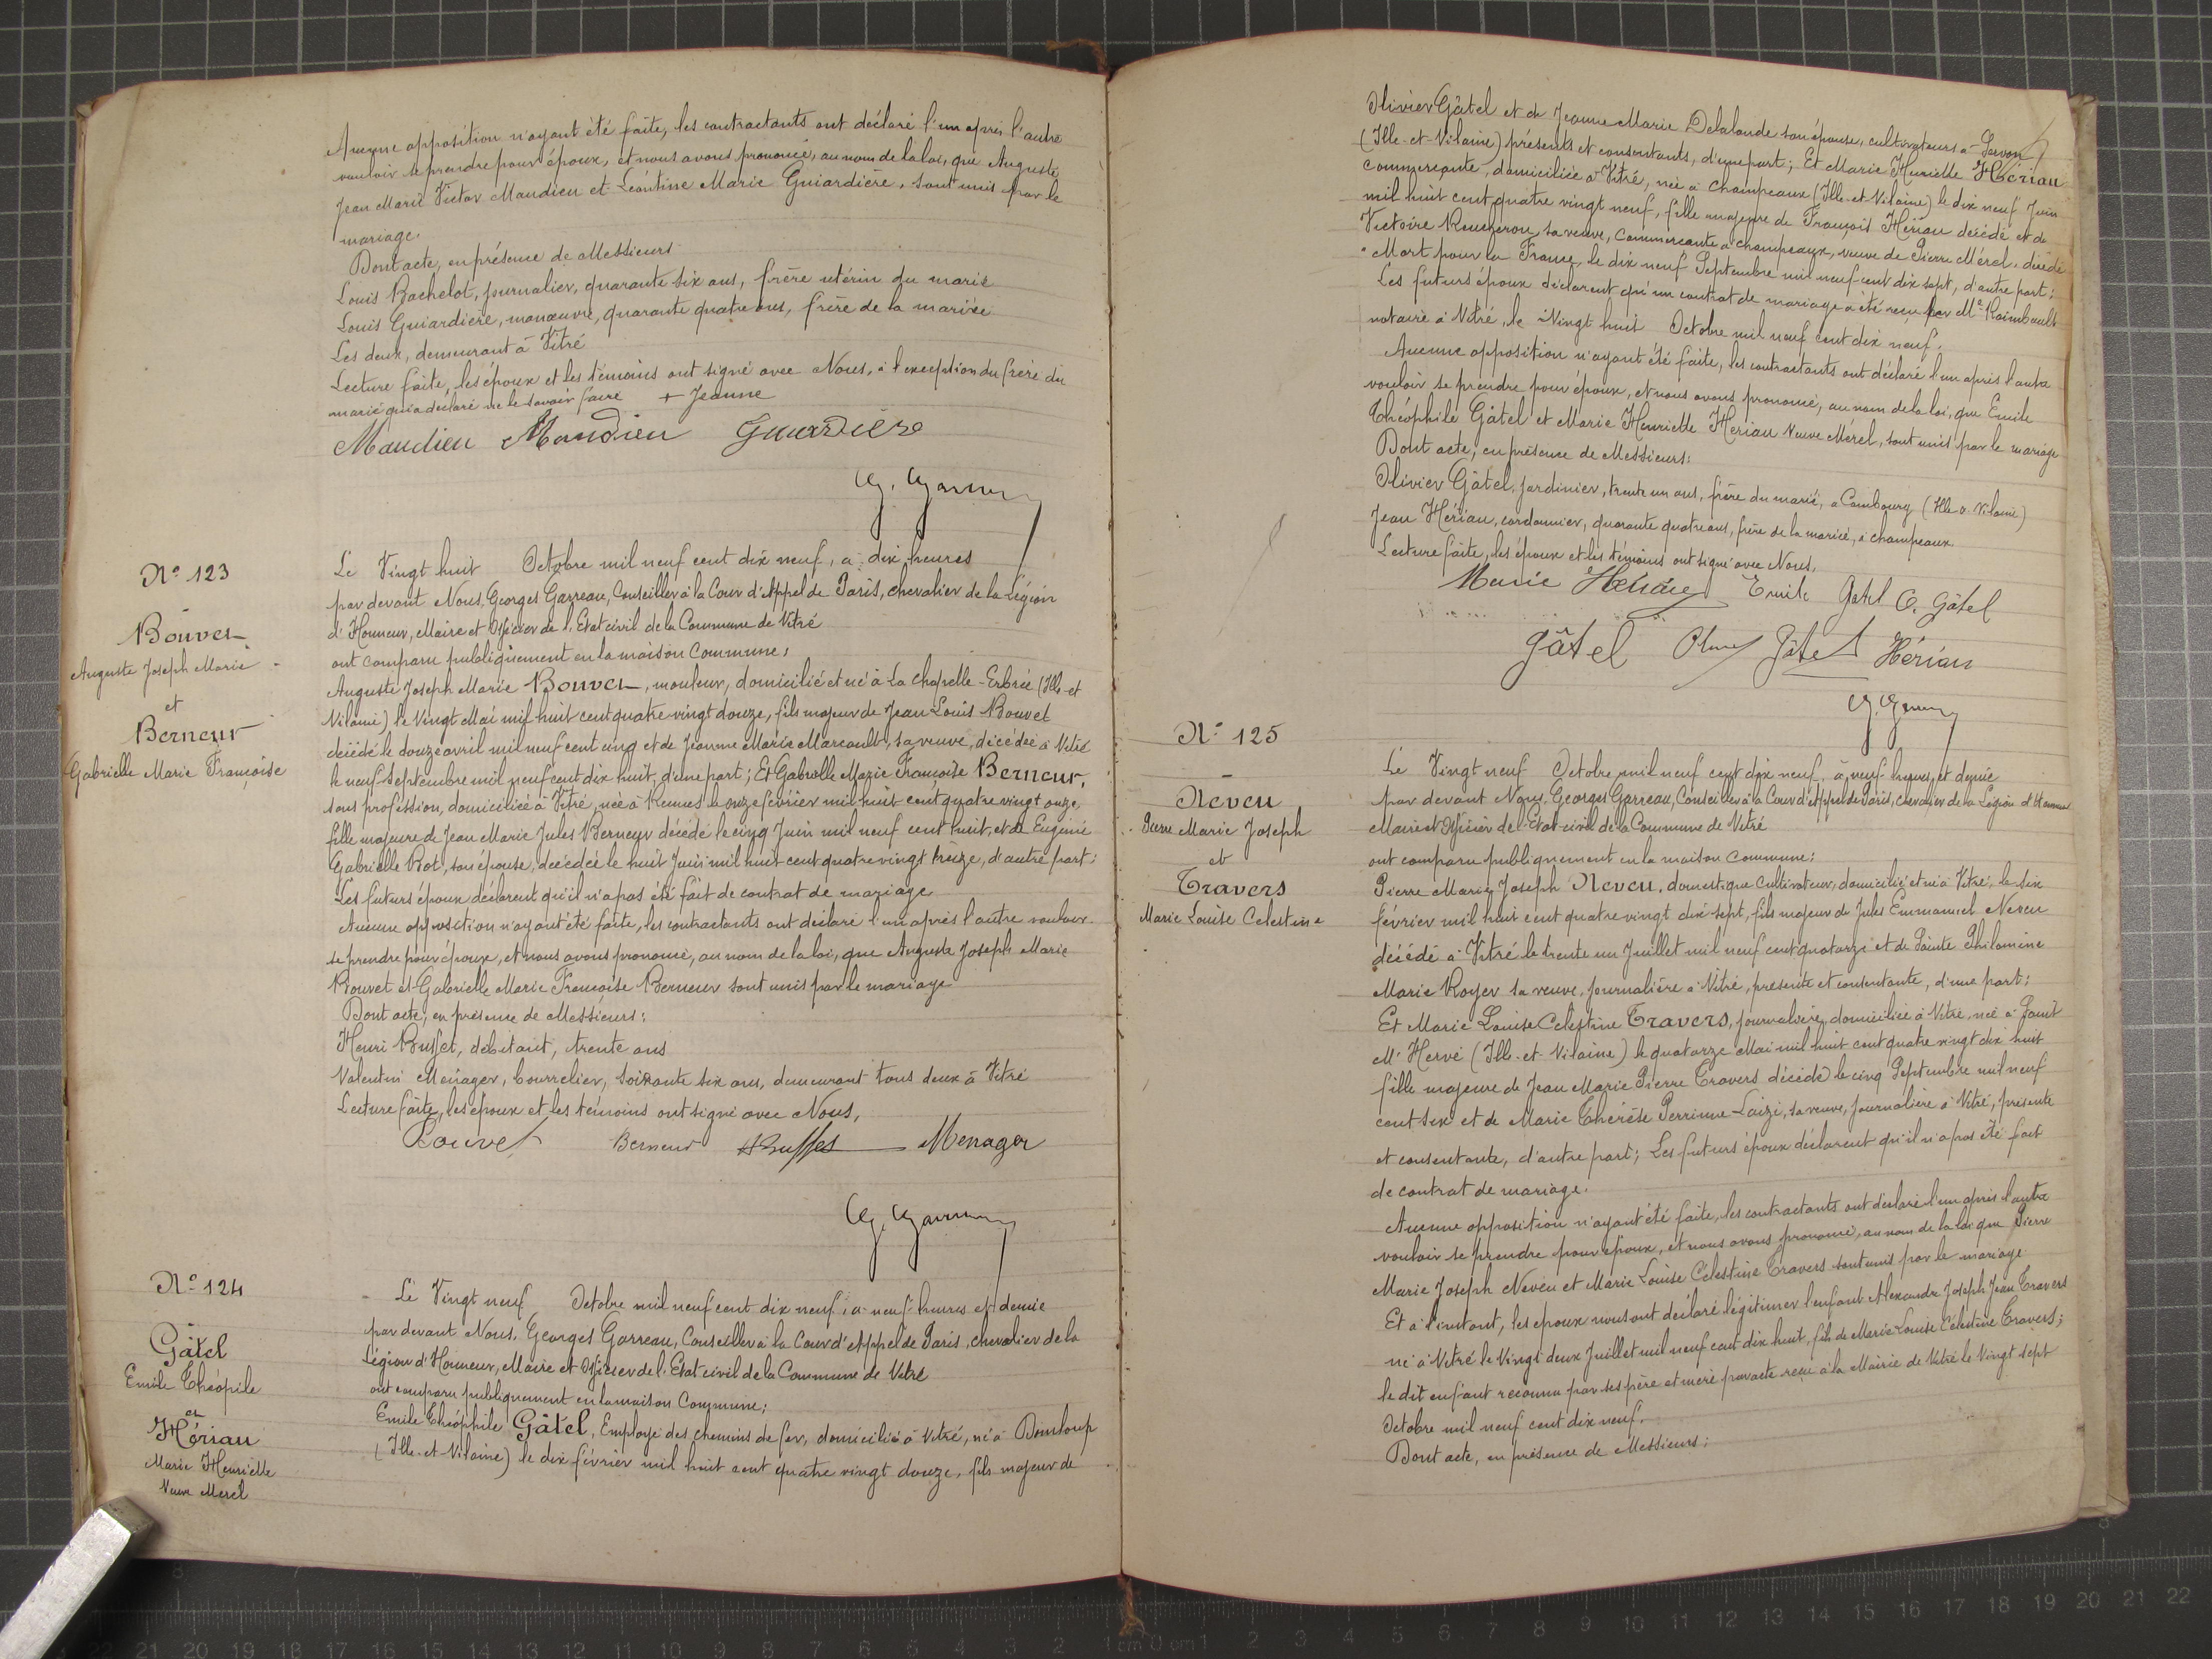 Aucune opposition n'ayant été faite, les contractants ont déclaré l'un après l'autre
vouloir se prendre pour époux, et nous avons prononcé, au nom de la loi, que Auguste
Jean Marie Victor Maudieu et Léontine Marie Guiardière, sont unis par le
mariage.
Dont acte, en présence de Messieurs
Louis Bachelot, journalier, quarante six ans, frère utérin du marié
Louis Guiardière, manœuvre, quarante quatre ans, frère de la mariée
Les deux, demeurant à Vitré
Lecture faite, les époux et les témoins ont signé avec Nous, à l'exception du frère du
marié qui a déclaré ne le savoir faire + Jeanne
Maudieu Maudieu Guiardière
G. Garreau
Nº 123
Bouvet
Auguste Joseph Marie
et
Berneur
Gabrielle Marie Françoise
Le Vingt huit Octobre mil neuf cent dix neuf, à dix heures
par devant Nous, Georges Garreau, Conseiller à la Cour d'Appel de Paris, chevalier de la Légion
d'Honneur, Maire et Officier de l'Etat civil de la Commune de Vitré
ont comparu publiquement en la maison Commune:
Auguste Joseph Marie Bouvet, mouleur, domicilié et né à La Chapelle-Erbrée (Ille-et
Vilaine) le Vingt Mai mil huit cent quatre-vingt douze, fils majeur de Jean Louis Bouvet
décédé le douze avril mil neuf cent cinq et de Jeanne Marie Marcault, sa veuve, décédée à Vitré
le neuf Septembre mil neuf cent dix huit, d'une part; Et Gabrielle Marie Françoise Berneur,
sans profession, domiciliée à Vitré, née à Rennes le onze février mil huit cent quatre vingt onze,
fille majeure de Jean Marie Jules Berneur décédé le cinq Juin mil neuf cent huit, et de Eugénie
Gabrielle Rot, son épouse, décédée le huit Juin mil huit cent quatre vingt treize, d'autre part:
Les futurs époux déclarent qu'il n'a pas été fait de contrat de mariage
Aucune opposition n'ayant été faite, les contractants ont déclaré l'un après l'autre vouloir
se prendre pour époux, et nous avons prononcé, au nom de la loi, que Auguste Joseph Marie
Bouvet et Gabrielle Marie Françoise Berneur sont unis par le mariage
Dont acte, en présence de Messieurs:
Henri Busset, débitant, trente ans
Valentin Ménager, bourrelier, soixante six ans, demeurant tous deux à Vitré
Lecture faite, les époux et les témoins ont signé avec Nous,
Bouvet Berneur HBusset Menager
G. Garreau
Nº 124
Gâtel
Emile Théopile
et
Hériau
Marie Henriette
Veuve Merel
Le Vingt neuf Octobre mil neuf cent dix neuf, à neuf heures et demie
par devant Nous, Georges Garreau, Conseiller à la Cour d'Appel de Paris, chevalier de la
Légion d'Honneur, Maire et Officier de l'Etat civil de la Commune de Vitré
ont comparu publiquement en la maison Commune;
Emile Théophile Gâtel, Employé des chemins de fer, domicilié à Vitré, né à Domloup
(Ille-et-Vilaine) le dix février mil huit cent quatre vingt douze, fils majeur de
Olivier Gâtel et de Jeanne Marie Delalande son épouse, cultivateurs à Servon
(Ille-et-Vilaine) présents et consentants, d'une part; Et Marie Henriette Hériau
commerçante, domiciliée à Vitré, née à Champeaux (Ille-et-Vilaine) le dix neuf Juin
mil huit cent quatre vingt neuf, fille majeure de François Hériau décédé et de
Victoire Rougeron, sa veuve, commerçante à Champeaux, veuve de Pierre Mérel, décédé
Mort pour la France, le dix neuf Septembre mil neuf cent dix sept, d'autre part;
Les futurs époux déclarent qu'un contrat de mariage a été reçu par Me Raimbault
notaire à Vitré, le Vingt huit Octobre mil neuf cent dix neuf.
Aucune opposition n'ayant été faite, les contractants ont déclaré l'un après l'autre
vouloir se prendre pour époux, et nous avons prononcé, au nom de la loi, que Emile
Théophile Gâtel et Marie Henriette Hériau Veuve Mérel, sont unis par le mariage
Dont acte, en présence de Messieurs:
Olivier Gâtel, jardinier, trente un ans, frère du marié, à Combourg (Ille-&-Vilaine)
Jean Hériau, cordonnier, quarante quatre ans, frère de la mariée, à Champeaux.
Lecture faite, les époux et les témoins ont signé avec Nous,
Marie Heriau Emile Gatel O. Gâtel
Gâtel Gâtel Hériau
G. Garreau
Nº 125
Neveu
Pierre Marie Joseph
et
Travers
Marie Louise Celestine
Le Vingt neuf Octobre mil neuf cent dix neuf, à neuf heures et demie
par devant Nous, Georges Garreau, Conseiller à la Cour d'Appel de Paris, chevalier de la Légion d'Honneur
Maire et Officier de l'Etat civil de la Commune de Vitré
ont comparu publiquement en la maison Commune:
Pierre Marie Joseph Neveu, domestique cultivateur, domicilié et né à Vitré, le six
février mil huit cent quatre vingt dix-sept, fils majeur de Jules Emmanuel Neveu
décédé à Vitré le trente un Juillet mil neuf cent quatorze et de Sainte Philomène
Marie Royer sa veuve, journalière à Vitré, présente et consentante, d'une part;
Et Marie Louise Célestine Travers, journalière, domiciliée à Vitré, née à Saint
M' Hervé (Ille-et-Vilaine) le quatorze Mai mil huit cent quatre vingt dix huit
fille majeure de Jean Marie Pierre Travers décédé le cinq Septembre mil neuf
cent six et de Marie Thérèse Perrinne Laizé, sa veuve, journalière à Vitré, présente
et consentante, d'autre part; Les futurs époux déclarent qu'il n'a pas été fait
de contrat de mariage.
Aucune opposition n'ayant été faite, les contractants ont déclaré l'un après l'autre
vouloir se prendre pour époux, et nous avons prononcé, au nom de la loi que Pierre
Marie Joseph Neveu et Marie Louise Célestine Travers sont unis par le mariage
Et à l'instant, les époux nous ont déclaré légitimer l'enfant Alexandre Joseph Jean Travers
né à Vitré le Vingt deux Juillet mil neuf cent dix huit, fils de Marie Louise Célestine Travers;
le dit enfant reconnu par ses père et mère par acte reçu à la Mairie de Vitré le Vingt sept
Octobre mil neuf cent dix neuf.
Dont acte, en présence de Messieurs;
22 21 20 19 18 17 16 15 14 13 12 11 10 9 8 7 6 5 4 3 2 1 cm 0 cm 1 2 3 4 5 6 7 8 9 10 11 12 13 14 15 16 17 18 19 20 21 22